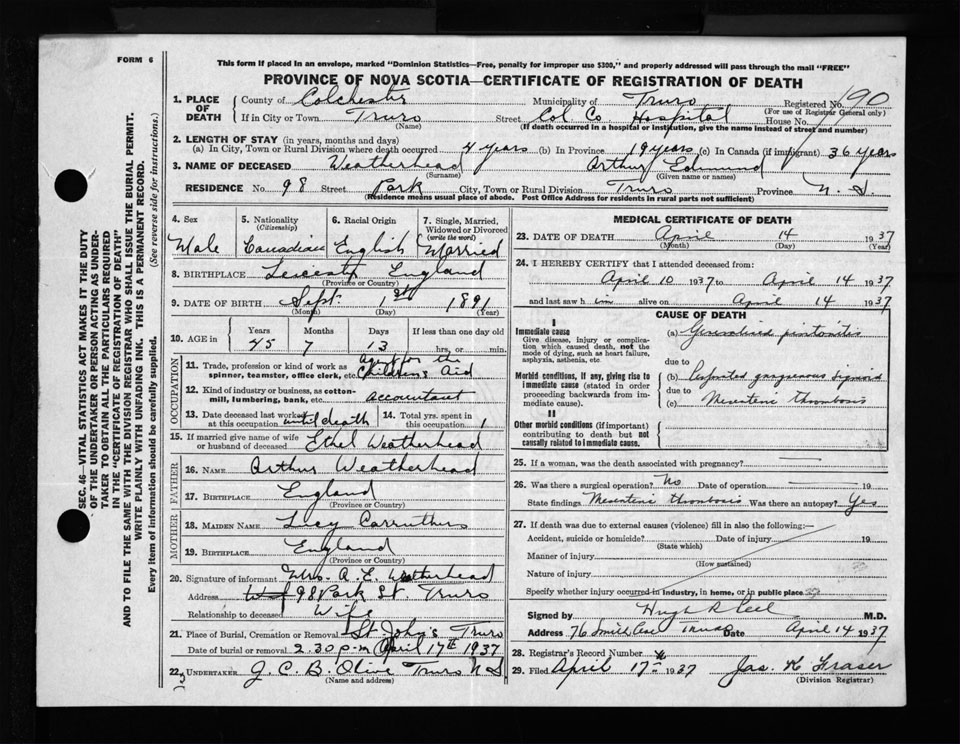 FORM 6
This form if placed in an envelope, marked "Dominion Statistics—Free, penalty for improper use $300," and properly addressed will pass through the mail "FREE"
PROVINCE OF NOVA SCOTIA—CERTIFICATE OF REGISTRATION OF DEATH
1. PLACE OF DEATH County of Colchester Municipality of Truro Registered No. 190
(For use of Registrar General only)
If in City or Town Truro Street Col. Co. Hospital House No.
(Name) (If death occurred in a hospital or institution, give the name instead of street and number)
2. LENGTH OF STAY (in years, months and days)
(a) In City, Town or Rural Division where death occurred 4 years (b) In Province 19 years (c) In Canada (if immigrant) 36 years
3. NAME OF DECEASED Weatherhead Arthur Edmund
(Surname) (Given name or names)
RESIDENCE No. 98 Street Park City, Town or Rural Division Truro Province N. S.
(Residence means usual place of abode. Post Office Address for residents in rural parts not sufficient)
4. Sex 5. Nationality (Citizenship) 6. Racial Origin 7. Single, Married, Widowed or Divorced (write the word)
Male Canadian English Married
8. BIRTHPLACE Leicester England
(Province or Country)
9. DATE OF BIRTH Sept. 1st 1891
(Month) (Day) (Year)
10. AGE in Years Months Days If less than one day old
45 7 13 hrs. or min.
OCCUPATION
11. Trade, profession or kind of work as spinner, teamster, office clerk, etc. Agent for the Children's Aid
12. Kind of industry or business, as cotton-mill, lumbering, bank, etc. Accountant
13. Date deceased last worked at this occupation until death 14. Total yrs. spent in this occupation 1
15. If married give name of wife or husband of deceased Ethel Weatherhead
FATHER
16. NAME Arthur Weatherhead
17. BIRTHPLACE England
(Province or Country)
MOTHER
18. MAIDEN NAME Lucy Carruthers
19. BIRTHPLACE England
(Province or Country)
20. Signature of informant Mrs. A. E. Weatherhead
Address 98 Park St. Truro
Relationship to deceased Wife
21. Place of Burial, Cremation or Removal St. John's Truro
Date of burial or removal 2.30 p.m April 17th 1937
22. UNDERTAKER J. C. B. Olive Truro N S
(Name and address)
MEDICAL CERTIFICATE OF DEATH
23. DATE OF DEATH April 14 1937
(Month) (Day) (Year)
24. I HEREBY CERTIFY that I attended deceased from:
April 10 1937 to April 14 1937
and last saw him alive on April 14 1937
CAUSE OF DEATH
I
Immediate cause
Give disease, injury or complication which caused death, not the mode of dying, such as heart failure, asphyxia, asthenia, etc.
(a) Generalized
due to
Morbid conditions, if any, giving rise to immediate cause (stated in order proceeding backwards from immediate cause).
(b) gangrenous sigmoid
due to
(c) Mesenteric thrombosis
II
Other morbid conditions (if important) contributing to death but not causally related to immediate cause.
25. If a woman, was the death associated with pregnancy?
26. Was there a surgical operation? No Date of operation 19
State findings Mesenteric thrombosis Was there an autopsy? Yes
27. If death was due to external causes (violence) fill in also the following:—
Accident, suicide or homicide? Date of injury 19
(State which)
Manner of injury
(How sustained)
Nature of injury
Specify whether injury occurred in industry, in home, or in public place
Signed by Hugh R Peel M.D.
Address 76 Truro Date April 14 1937
28. Registrar's Record Number
29. Filed April 17 1937 Jas. K Fraser
(Division Registrar)
SEC. 46—VITAL STATISTICS ACT MAKES IT THE DUTY
OF THE UNDERTAKER OR PERSON ACTING AS UNDER-
TAKER TO OBTAIN ALL THE PARTICULARS REQUIRED
IN THE "CERTIFICATE OF REGISTRATION OF DEATH"
AND TO FILE THE SAME WITH THE DIVISION REGISTRAR WHO SHALL ISSUE THE BURIAL PERMIT.
WRITE PLAINLY WITH UNFADING INK. THIS IS A PERMANENT RECORD.
Every item of information should be carefully supplied. (See reverse side for instructions.)